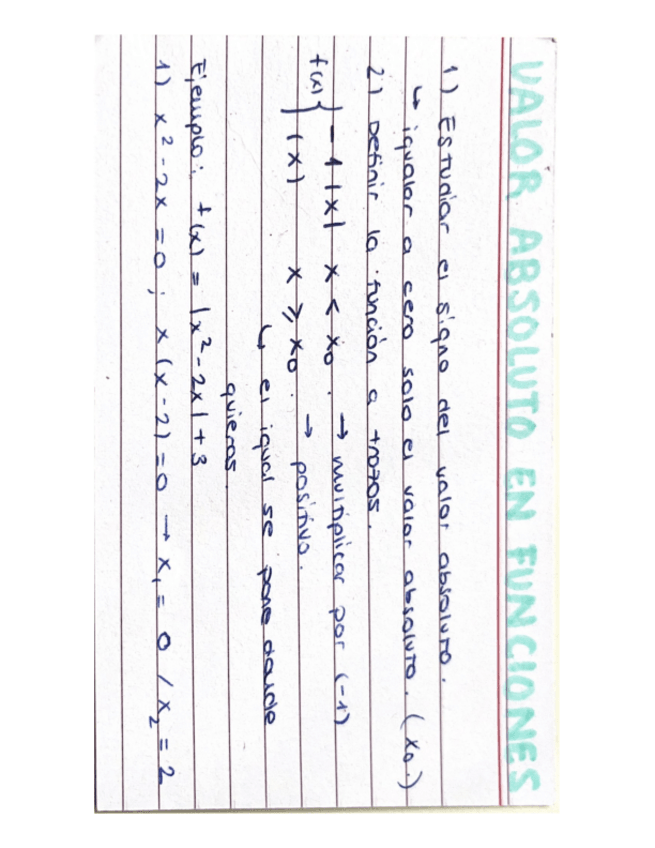 VALOR ABSOLUTO EN FUNCIONES
1) Estudiar el signo del valor absoluto.
↳ igualar a cero solo el valor absoluto. (x₀.)
2) Definir la función a trozos.
f(x) } -1 |x| x < x₀. → multiplicar por (-1)
(x) x ⩾ x₀. → positivo.
↳ el igual se pone donde
quieras.
Ejemplo: f(x) = |x² - 2x| + 3
1) x² - 2x = 0 ; x (x - 2) = 0 → x₁ = 0 / x₂ = 2